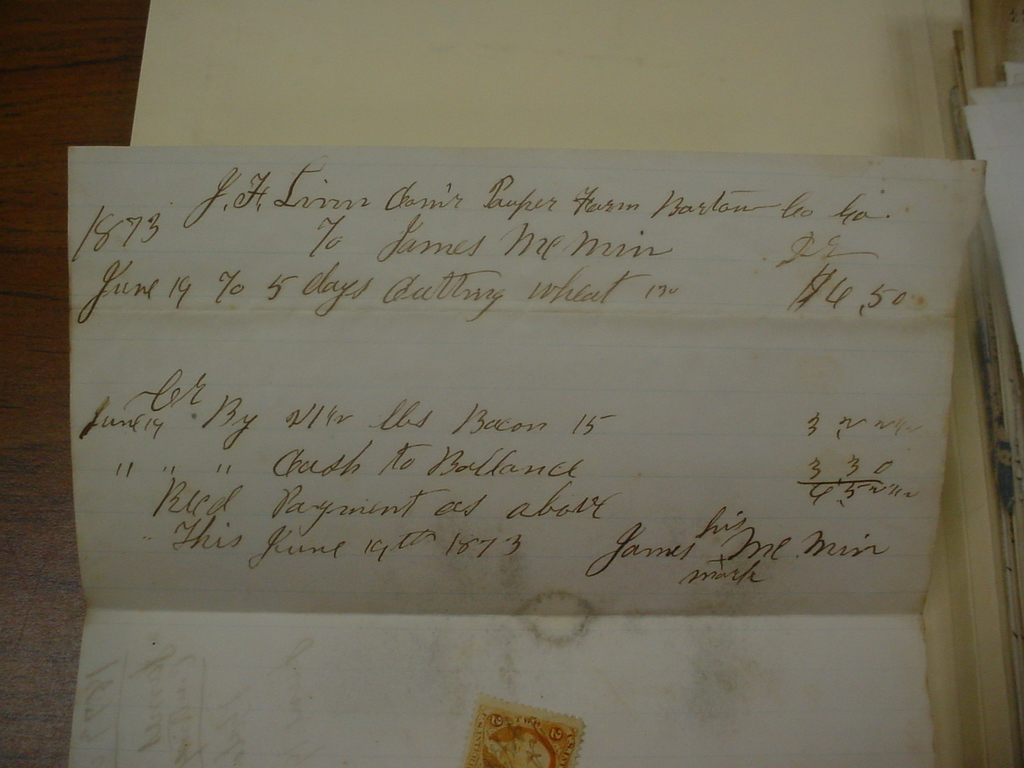 J. F. Linn Com'r Pauper Farm Bartow Co Ga.
1873 To James Mc Min Dr
June 19 To 5 days Cutting wheat $6,50
Cr
June 19 By 21 1/2 lbs Bacon 15 3 22 1/2
" " " Cash to Ballance 3 30
6 52 1/2
Recd Payment as above
This June 19th 1873 James his Mc Min
mark